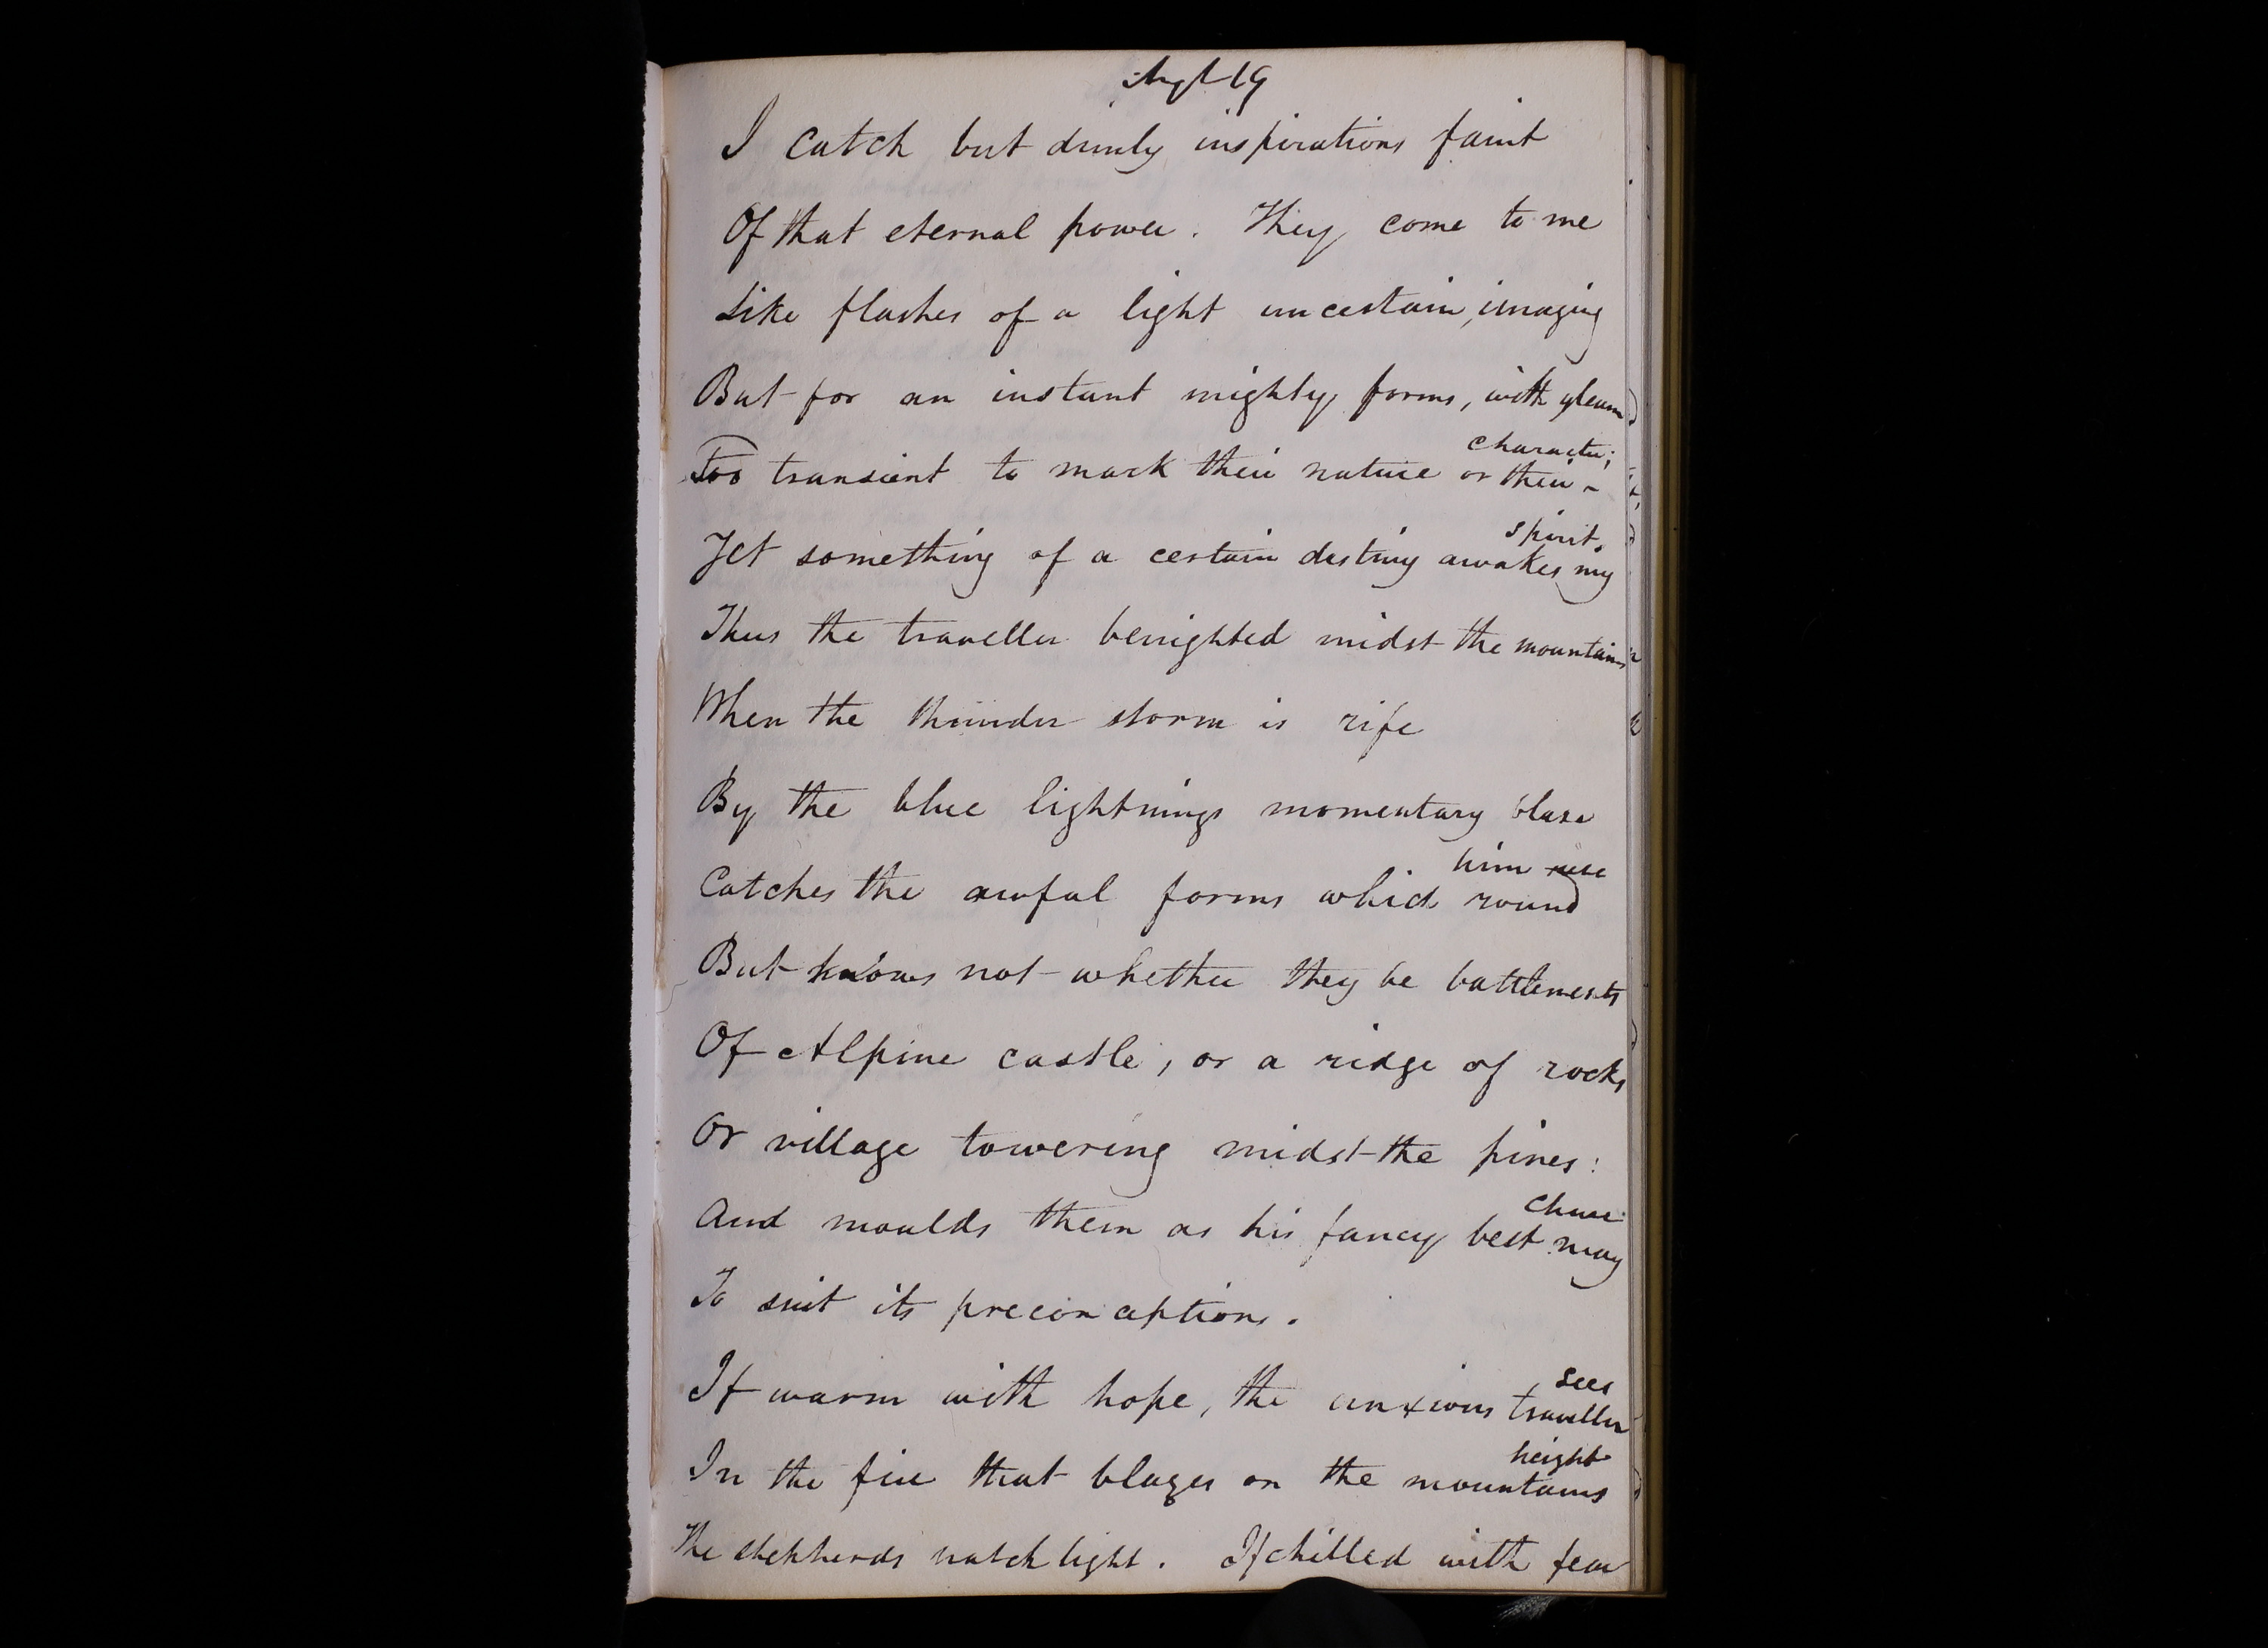 Augt 19
I catch but dimly inspirations faint
Of that eternal power. They come to me
Like flashes of a light uncertain, imaging
But for an instant mighty forms, with gleam
Too transient to mark their nature or their
character;
Yet something of a certain destiny awakes my
spirit.
Thus the traveller benighted midst the mountains
When the thunder storm is rife
By the blue lightnings momentary blaze
Catches the awful forms which round
him rise
But knows not whether they be battlements
Of Alpine castle, or a ridge of rocks
Or village towering midst the pines:
And moulds them as his fancy best may
chuse
To suit its preconceptions.
If warm with hope, the anxious traveller
sees
In the fire that blazes on the mountains
height
The shepherds watch light. If chilled with fear